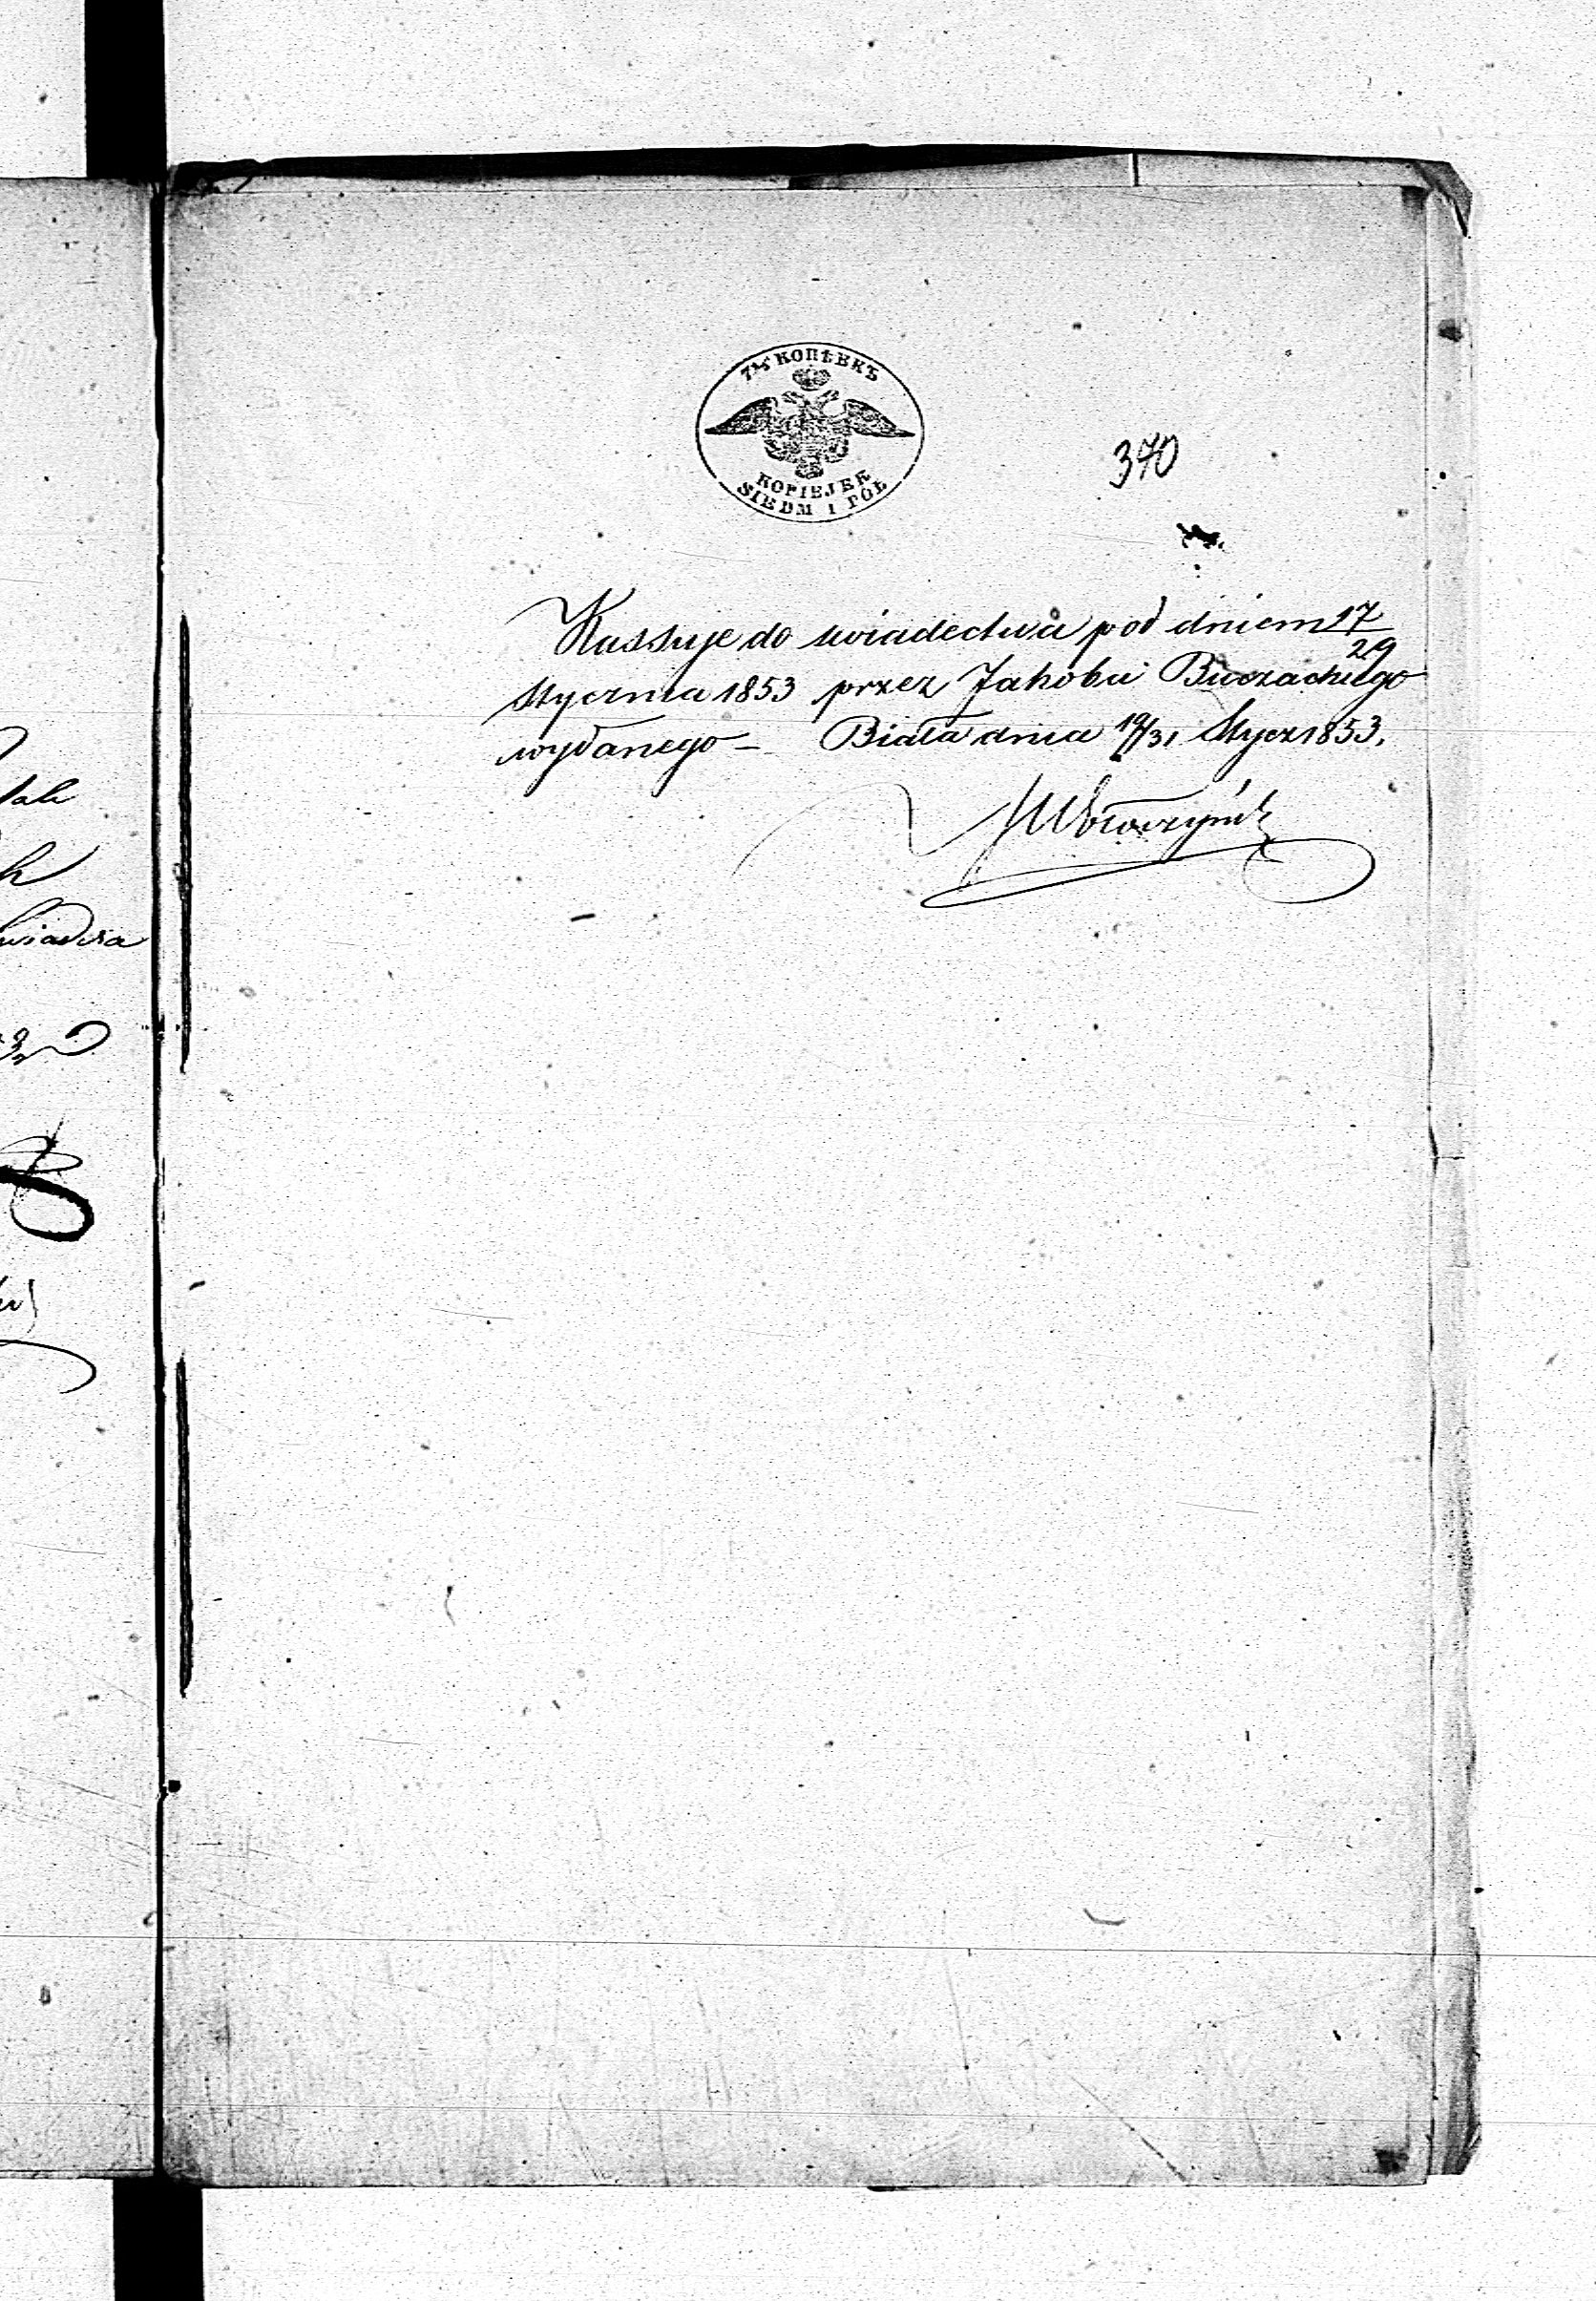 7½ КОПѢЕКЪ
KOPIEJEK
SIEDM I PÓŁ
370
Kassuje do swiadectwa pod dniem 17/29
Stycznia 1853 przez Jakoba
wydanego – Biała dnia 19/31 Stycz 1853.